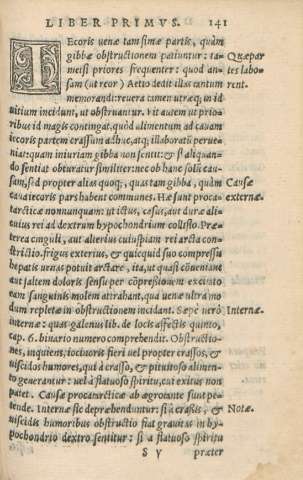 LIBER PRIMVS. 141
IEcoris uenæ tam simæ partis, quàm
gibbæ obstructionem patiuntur: ta-
metsi priores frequenter: quod an-
sam (ut reor) Aetio dedit illas tantum
memorandi: reuera tamen utræq; in id
uitium incidunt, ut obstruantur. Vt autem ut prio-
ribus id magis contingat, quòd alimentum ad cauam
iecoris partem crassum adhuc, atq; illaboratū perue-
niat: quam iniuriam gibba non sentit: & si aliquan-
do sentiat obturatur similiter: nec ob hanc solū cau-
sam, sed propter alias quoq;, quas tam gibba, quàm
caua iecoris pars habent communes. Hæ sunt proca-
tarcticæ nonnunquam: ut ictus, cesus, aut duræ ali-
cuius rei ad dextrum hypochondrium collisio. Præ-
terea cinguli, aut alterius cuiuspiam rei arcta con-
strictio. frigus exterius, & quicquid suo compressu
hepatis uenas potuit arctare, ita, ut quasi cōueniant
aut saltem doloris sensu per cōpressionem excitato
eam sanguinis molem attrahant, qua uenæ ultra mo
dum repletæ in obstructionem incidant. Sæpè uerò
internæ: quas galenus lib. de locis affectis quinto,
cap. 6. binario numero comprehendit. Obstructio-
nes, inquiens, iocinoris fieri uel propter crassos, &
uiscidos humores, qui à crasso, & pituitoso alimen-
to generantur: uel à flatuoso spiritu, cui exitus non
patet. Causæ procatarcticæ ab ægrotante sunt pe-
tendæ. Internæ sic deprehenduntur: si à crassis, &
uiscidis humoribus obstructio fiat grauitas in hy-
pochondrio dextro sentitur: si à flatuoso spiritu
S V præter
Quæ par-
tes labo-
rent.
Causæ
externæ.
Internæ.
Notæ.